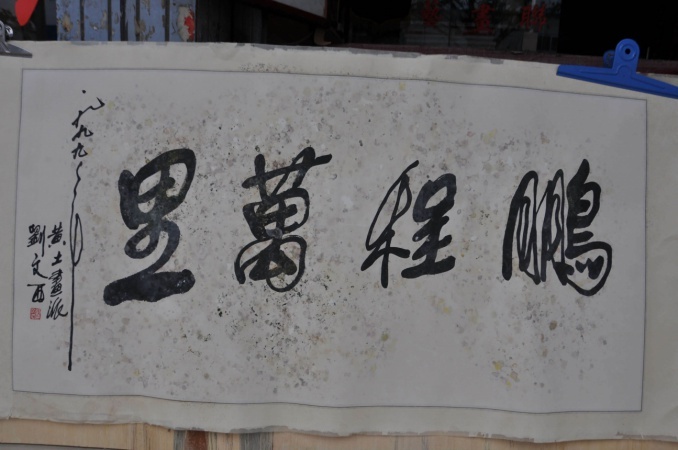 鵬程萬里
一九九九年
黄土畫派
劉文西